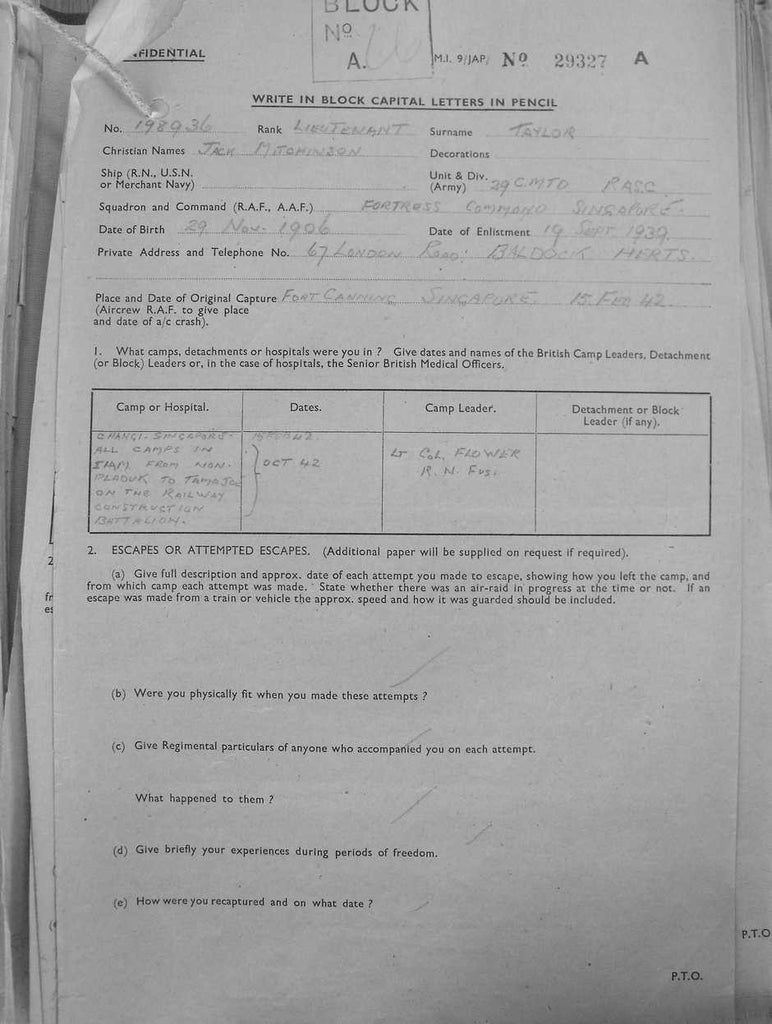 BLOCK
Nº
A.
FIDENTIAL
M.I. 9/JAP/ Nº 29327 A
WRITE IN BLOCK CAPITAL LETTERS IN PENCIL
No. 198936 Rank LIEUTENANT Surname TAYLOR
Christian Names JACK MITCHINSON Decorations
Ship (R.N., U.S.N.
or Merchant Navy)
Unit & Div.
(Army) 39 C.MTD RASC
Squadron and Command (R.A.F., A.A.F.) FORTRESS COMMAND SINGAPORE.
Date of Birth 29 Nov. 1906 Date of Enlistment 19 SEPT 1939
Private Address and Telephone No. 67 LONDON ROAD: BALDOCK HERTS.
Place and Date of Original Capture FORT CANNING SINGAPORE. 15 FEB 42
(Aircrew R.A.F. to give place
and date of a/c crash).
1. What camps, detachments or hospitals were you in ? Give dates and names of the British Camp Leaders, Detachment
(or Block) Leaders or, in the case of hospitals, the Senior British Medical Officers.
Camp or Hospital. Dates. Camp Leader. Detachment or Block
Leader (if any).
CHANGI. SINGAPORE. 15 FEB 42.
ALL CAMPS IN
SIAM FROM NON.
PLADUK TO
ON THE RAILWAY
CONSTRUCTION
BATTALION.
OCT 42
LT COL. FLOWER
R. N. FUS.
2. ESCAPES OR ATTEMPTED ESCAPES. (Additional paper will be supplied on request if required).
(a) Give full description and approx. date of each attempt you made to escape, showing how you left the camp, and
from which camp each attempt was made. State whether there was an air-raid in progress at the time or not. If an
escape was made from a train or vehicle the approx. speed and how it was guarded should be included.
(b) Were you physically fit when you made these attempts ?
(c) Give Regimental particulars of anyone who accompanied you on each attempt.
What happened to them ?
(d) Give briefly your experiences during periods of freedom.
(e) How were you recaptured and on what date ?
P.T.O.
2
fr
es
P.T.O